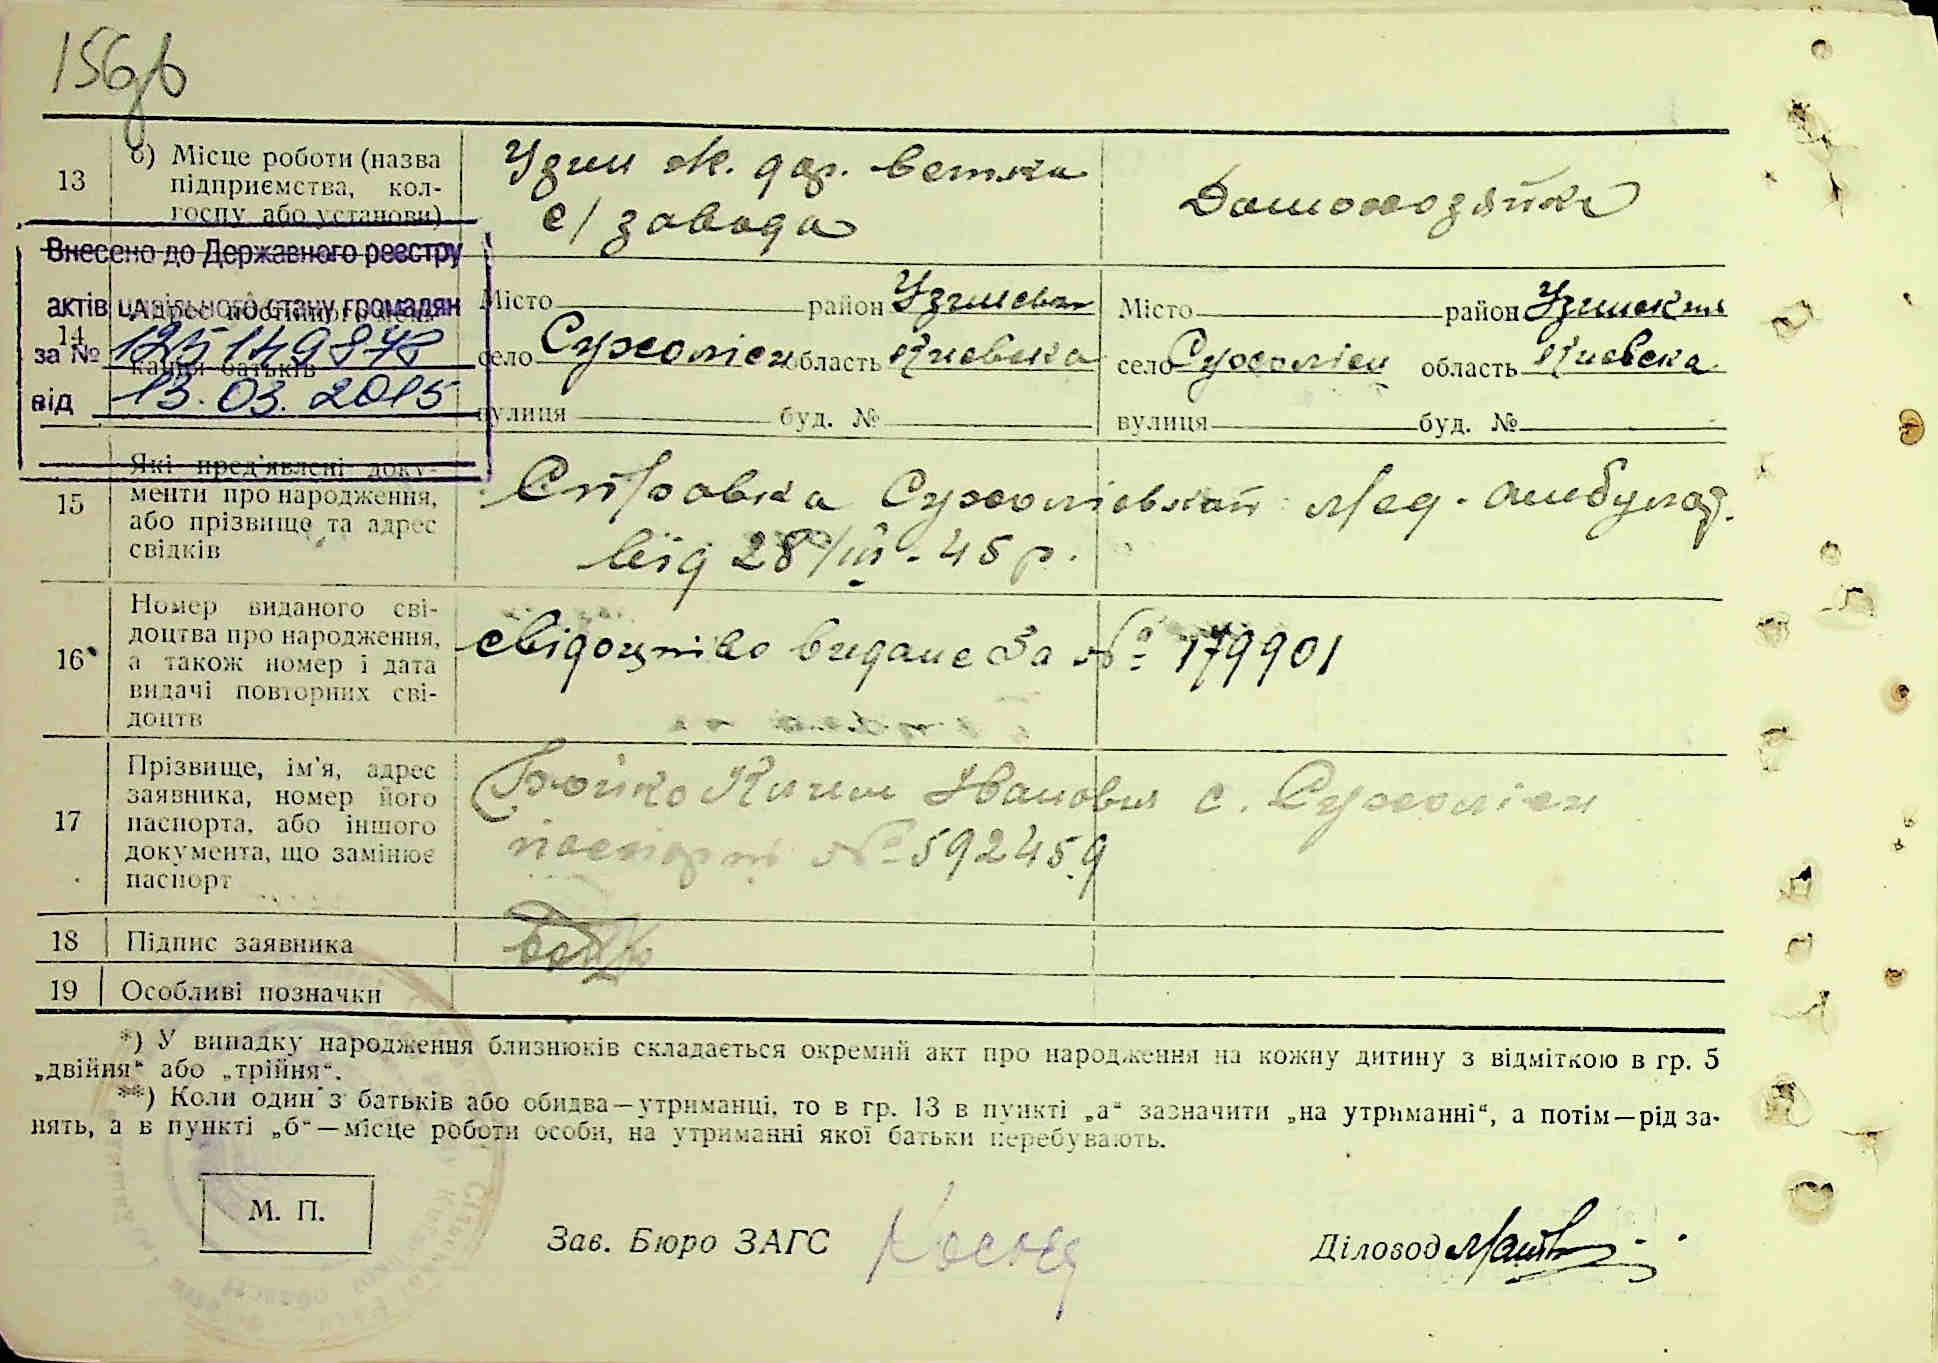 156
13
б) Місце роботи (назва
підприємства, кол-
госпу або установи)
Узин ж. дор. ветка
с/завода
Домохозяйка
Внесено до Державного реєстру
актів цивільного стану громадян
за № 125149878
від 13.03.2015
14
Адрес постійного меш-
кання батьків
Місто район Узинський
село Сухоліси область Киевська
вулиця буд. №
Місто район Узинский
село Сухоліси область Киевска
вулиця буд. №
15
Які пред'явлені доку-
менти про народження,
або прізвище та адрес
свідків
Справка Сухоліської Мед. амбулат.
від 28/III-45 р.
16
Номер виданого сві-
доцтва про народження,
а також номер і дата
видачі повторних сві-
доцтв
свідоцтво видане за № 179901
17
Прізвище, ім'я, адрес
заявника, номер його
паспорта, або іншого
документа, що замінює
паспорт
Бойко Иванович с. Сухоліси
паспорт № 592459
18
Підпис заявника
19
Особливі позначки
*) У випадку народження близнюків складається окремий акт про народження на кожну дитину з відміткою в гр. 5
„двійня“ або „трійня“.
**) Коли один з батьків або обидва—утриманці, то в гр. 13 в пункті „а“ зазначити „на утриманні“, а потім—рід за-
нять, а в пункті „б“—місце роботи особи, на утриманні якої батьки перебувають.
М. П.
Зав. Бюро ЗАГС
Діловод